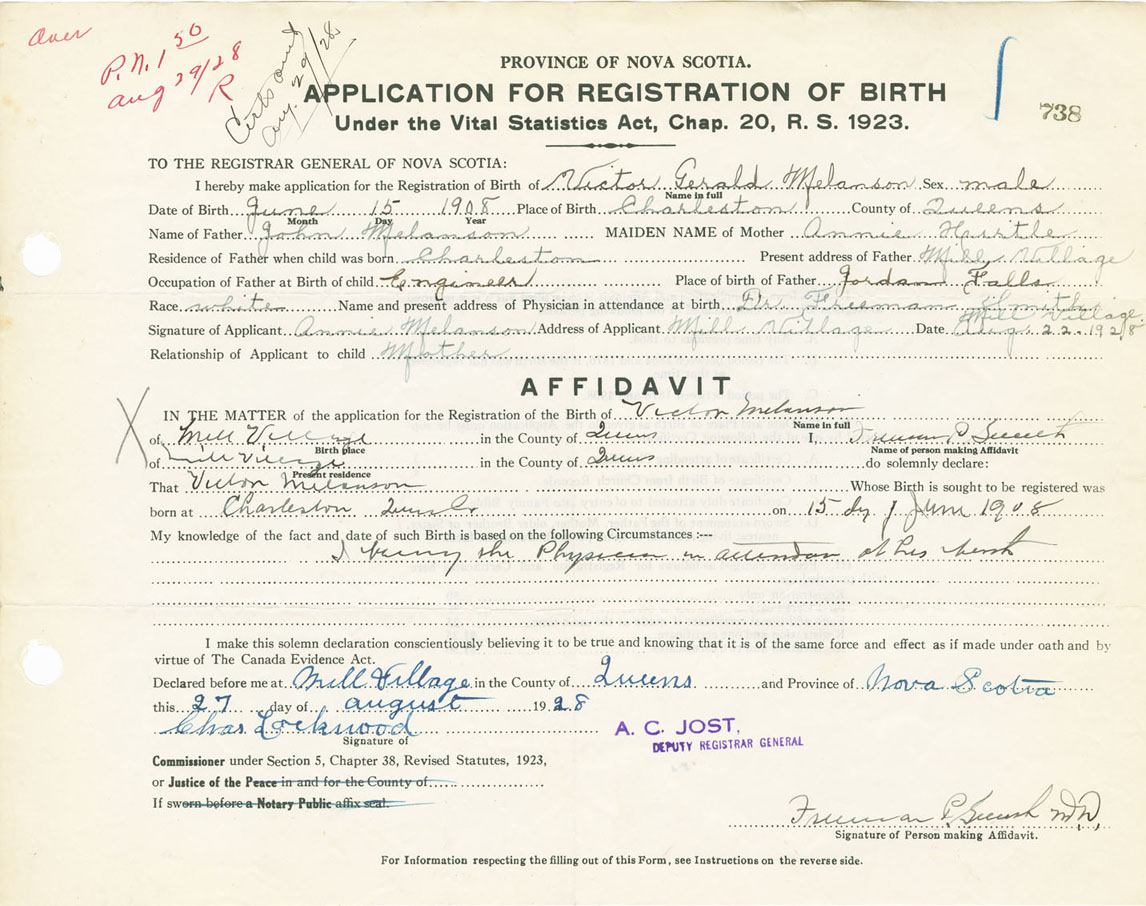 over
P.N. 1 50
aug 29/28
R
Certs out
aug. 29/28
738
PROVINCE OF NOVA SCOTIA.
APPLICATION FOR REGISTRATION OF BIRTH
Under the Vital Statistics Act, Chap. 20, R. S. 1923.
TO THE REGISTRAR GENERAL OF NOVA SCOTIA:
I hereby make application for the Registration of Birth of Victor Gerald Melanson Sex male
Name in full
Date of Birth June 15 1908 Place of Birth Charleston County of Queens
Month Day Year
Name of Father John Melanson MAIDEN NAME of Mother Annie Hartle
Residence of Father when child was born Charleston Present address of Father Mill Village
Occupation of Father at Birth of child Engineer Place of birth of Father Jordan Falls
Race white Name and present address of Physician in attendance at birth Dr. Freeman Smith
Mill Village
Signature of Applicant Annie Melanson Address of Applicant Mill Village Date Aug. 22 1928
Relationship of Applicant to child Mother
AFFIDAVIT
X
IN THE MATTER of the application for the Registration of the Birth of Victor Melanson
Name in full
of Mill Village in the County of Queens I, Freeman P Smith
Birth place Name of person making Affidavit
of Mill Village in the County of Queens do solemnly declare:
Present residence
That Victor Melanson Whose Birth is sought to be registered was
born at Charleston Queens Co on 15 day of June 1908
My knowledge of the fact and date of such Birth is based on the following Circumstances :---
I being the Physician in attendan at his birth
I make this solemn declaration conscientiously believing it to be true and knowing that it is of the same force and effect as if made under oath and by
virtue of The Canada Evidence Act.
Declared before me at Mill Village in the County of Queens and Province of Nova Scotia
this 27 day of august 1928
Chas Lockwood
Signature of
A. C. JOST,
DEPUTY REGISTRAR GENERAL
Commissioner under Section 5, Chapter 38, Revised Statutes, 1923,
or Justice of the Peace in and for the County of
If sworn before a Notary Public affix seal.
Freeman P Smith MD,
Signature of Person making Affidavit.
For Information respecting the filling out of this Form, see Instructions on the reverse side.